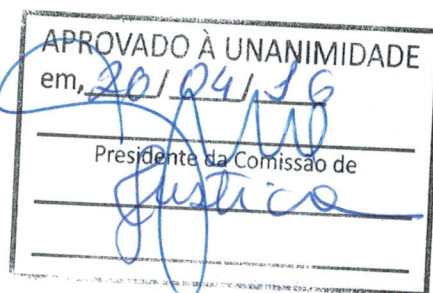 APROVADO À UNANIMIDADE
em, 20/04/16
Presidente da Comissão de
Justiça